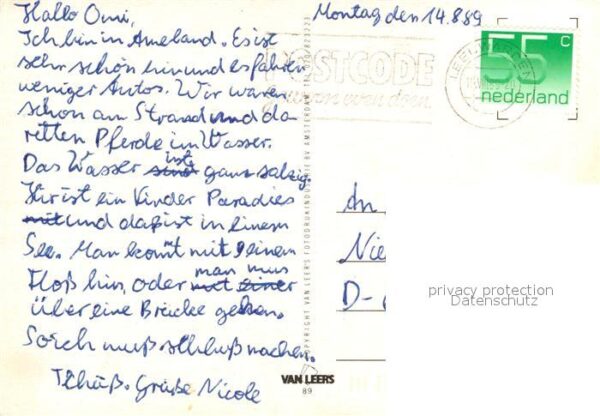 Montag den 14.8.89
Hallo Omi,
Ich bin in Ameland. Es ist
sehr schön hir und es fahren
weniger Autos. Wir waren
schon am Strand und da
ritten Pferde im Wasser.
Das Wasser ist ganz salzig.
Hir ist ein Kinder Paradies
und daß ist in einem
See. Man komt mit einem
Floß hin, oder man mus
über eine Brücke gehen.
Sorch muß schluß machen.
Tchüß. Grüße Nicole
POSTCODE
gewoon even doen.
LEEUWARDEN
55 c
nederland
An
Nie
D-
privacy protection
Datenschutz
COPYRIGHT VAN LEER'S FOTODRUKINDUSTRIE BV AMSTERDAM
VAN LEERS
89